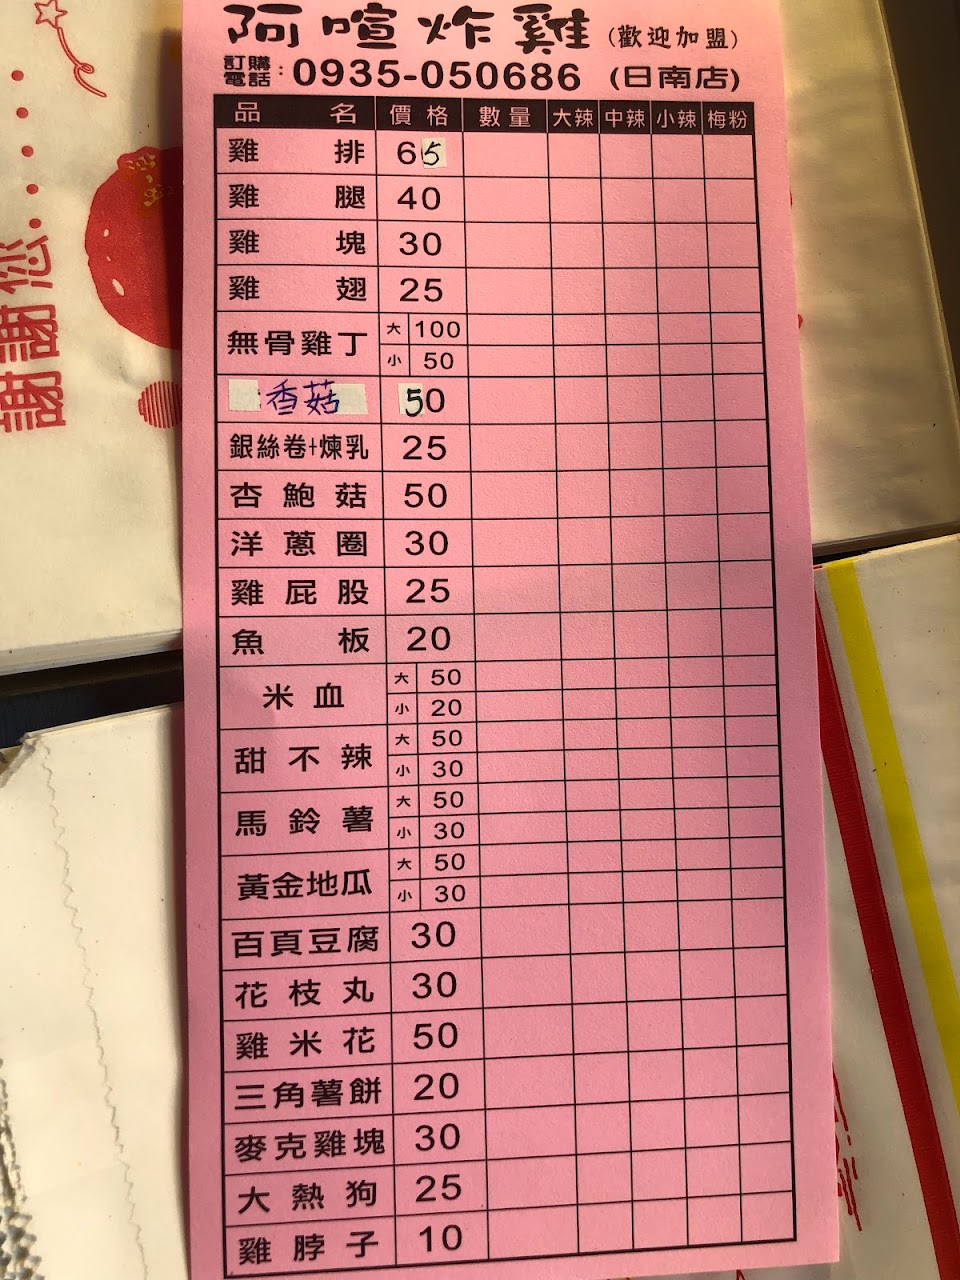 阿喧炸雞 (歡迎加盟)
訂購電話：0935-050686 (日南店)
品名 價格 數量 大辣 中辣 小辣 梅粉
雞排 65
雞腿 40
雞塊 30
雞翅 25
無骨雞丁 大 100
小 50
香菇 50
銀絲卷+煉乳 25
杏鮑菇 50
洋蔥圈 30
雞屁股 25
魚板 20
米血 大 50
小 20
甜不辣 大 50
小 30
馬鈴薯 大 50
小 30
黃金地瓜 大 50
小 30
百頁豆腐 30
花枝丸 30
雞米花 50
三角薯餅 20
麥克雞塊 30
大熱狗 25
雞脖子 10
謝謝您....